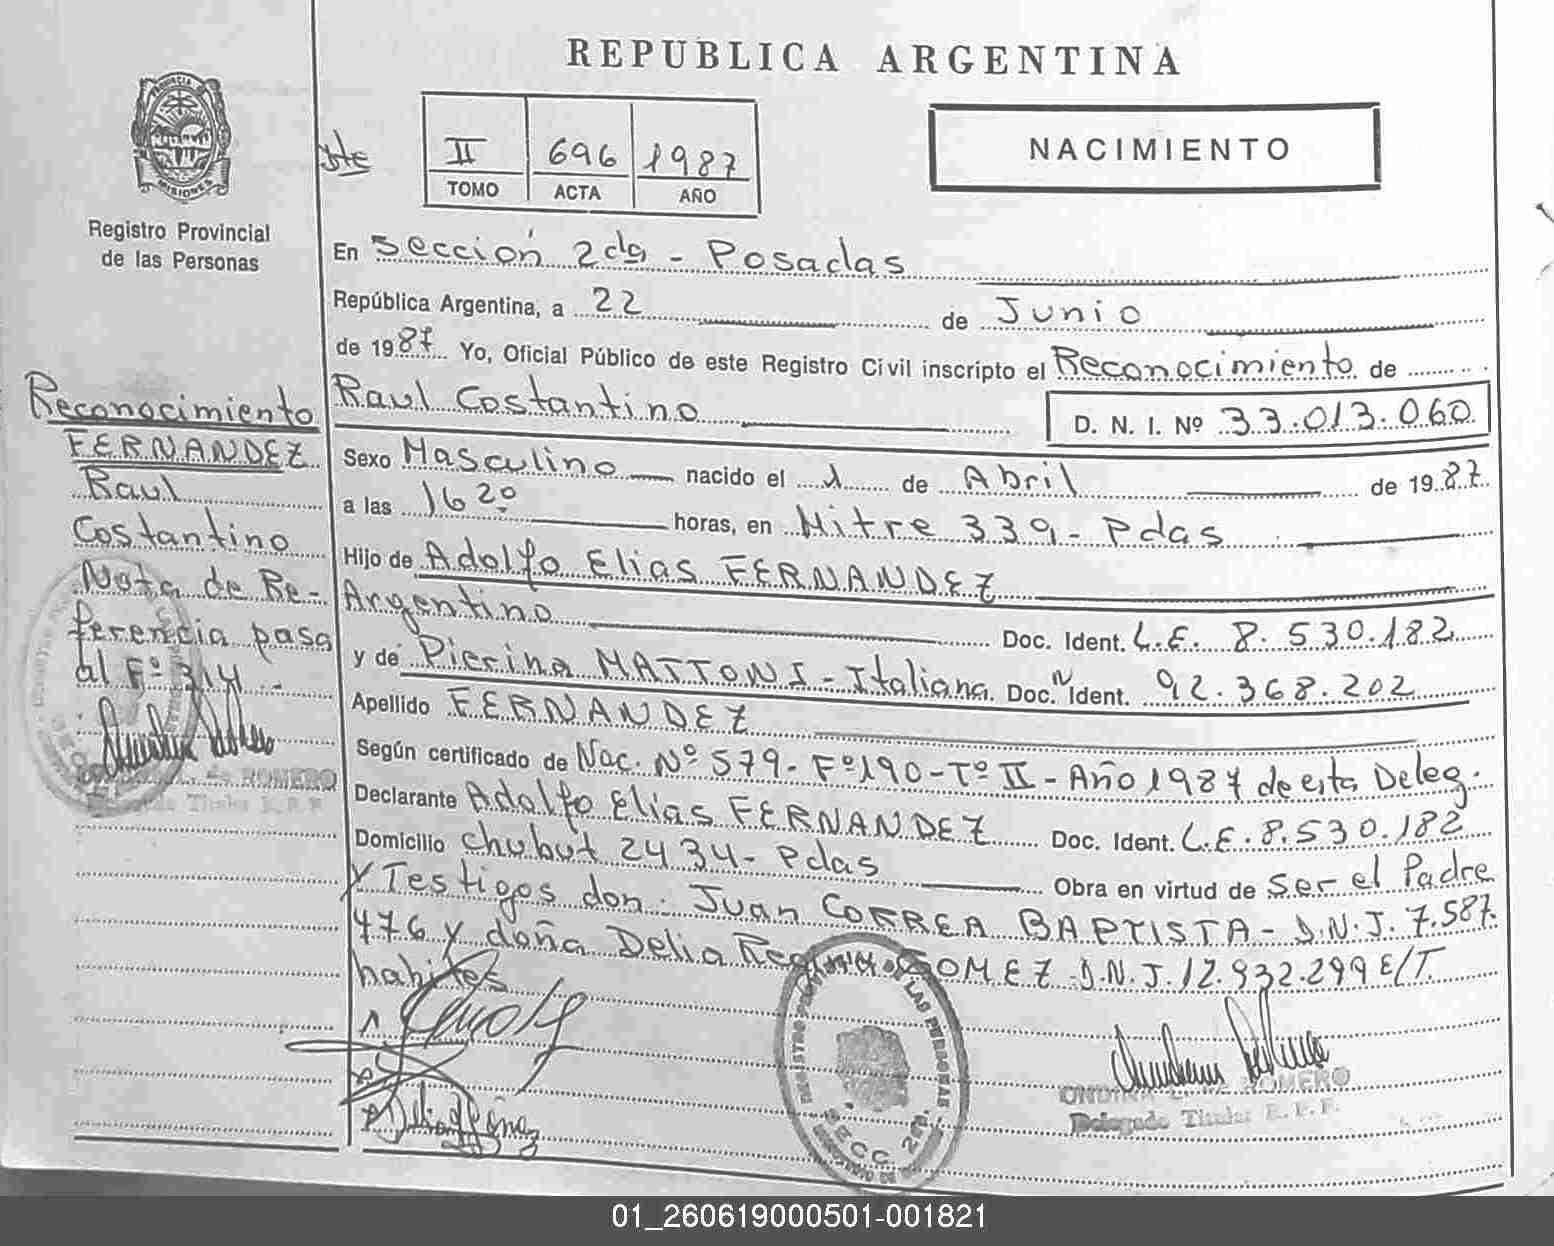 REPUBLICA ARGENTINA
PROVINCIA DE
MISIONES
Registro Provincial
de las Personas
II 696 1987
TOMO ACTA AÑO
NACIMIENTO
En Sección 2da - Posadas
República Argentina, a 22 de Junio
de 1987 Yo, Oficial Público de este Registro Civil inscripto el Reconocimiento de
Raul Costantino D. N. I. Nº 33.013.060
Sexo Masculino nacido el 1 de Abril de 1987
a las 16 20 horas, en Mitre 339 - Pdas
Hijo de Adolfo Elias FERNANDEZ
Argentino Doc. Ident. L.E. 8.530.182
y de Pierina MATTONI - Italiana Doc. Ident. 92.368.202
Apellido FERNANDEZ
Según certificado de Nac. Nº 579 - Fº 190 - Tº II - Año 1987 de esta Deleg.
Declarante Adolfo Elias FERNANDEZ Doc. Ident. L.E. 8.530.182
Domicilio Chubut 2434 - Pdas Obra en virtud de Ser el Padre
y Testigos don Juan CORREA BAPTISTA - D.N.I. 7.587.
476 y doña Delia GOMEZ D.N.I. 12.932.299 E/T.
habiles
Reconocimiento
FERNANDEZ
Raul
Costantino
Nota de Re-
ferencia pasa
al Fº 314
ROMERO
Delegado Titular R.P.P.
LAS PERSONAS
SECC. 2da.
ROMERO
Delegado Titular R.P.P.
01_260619000501-001821